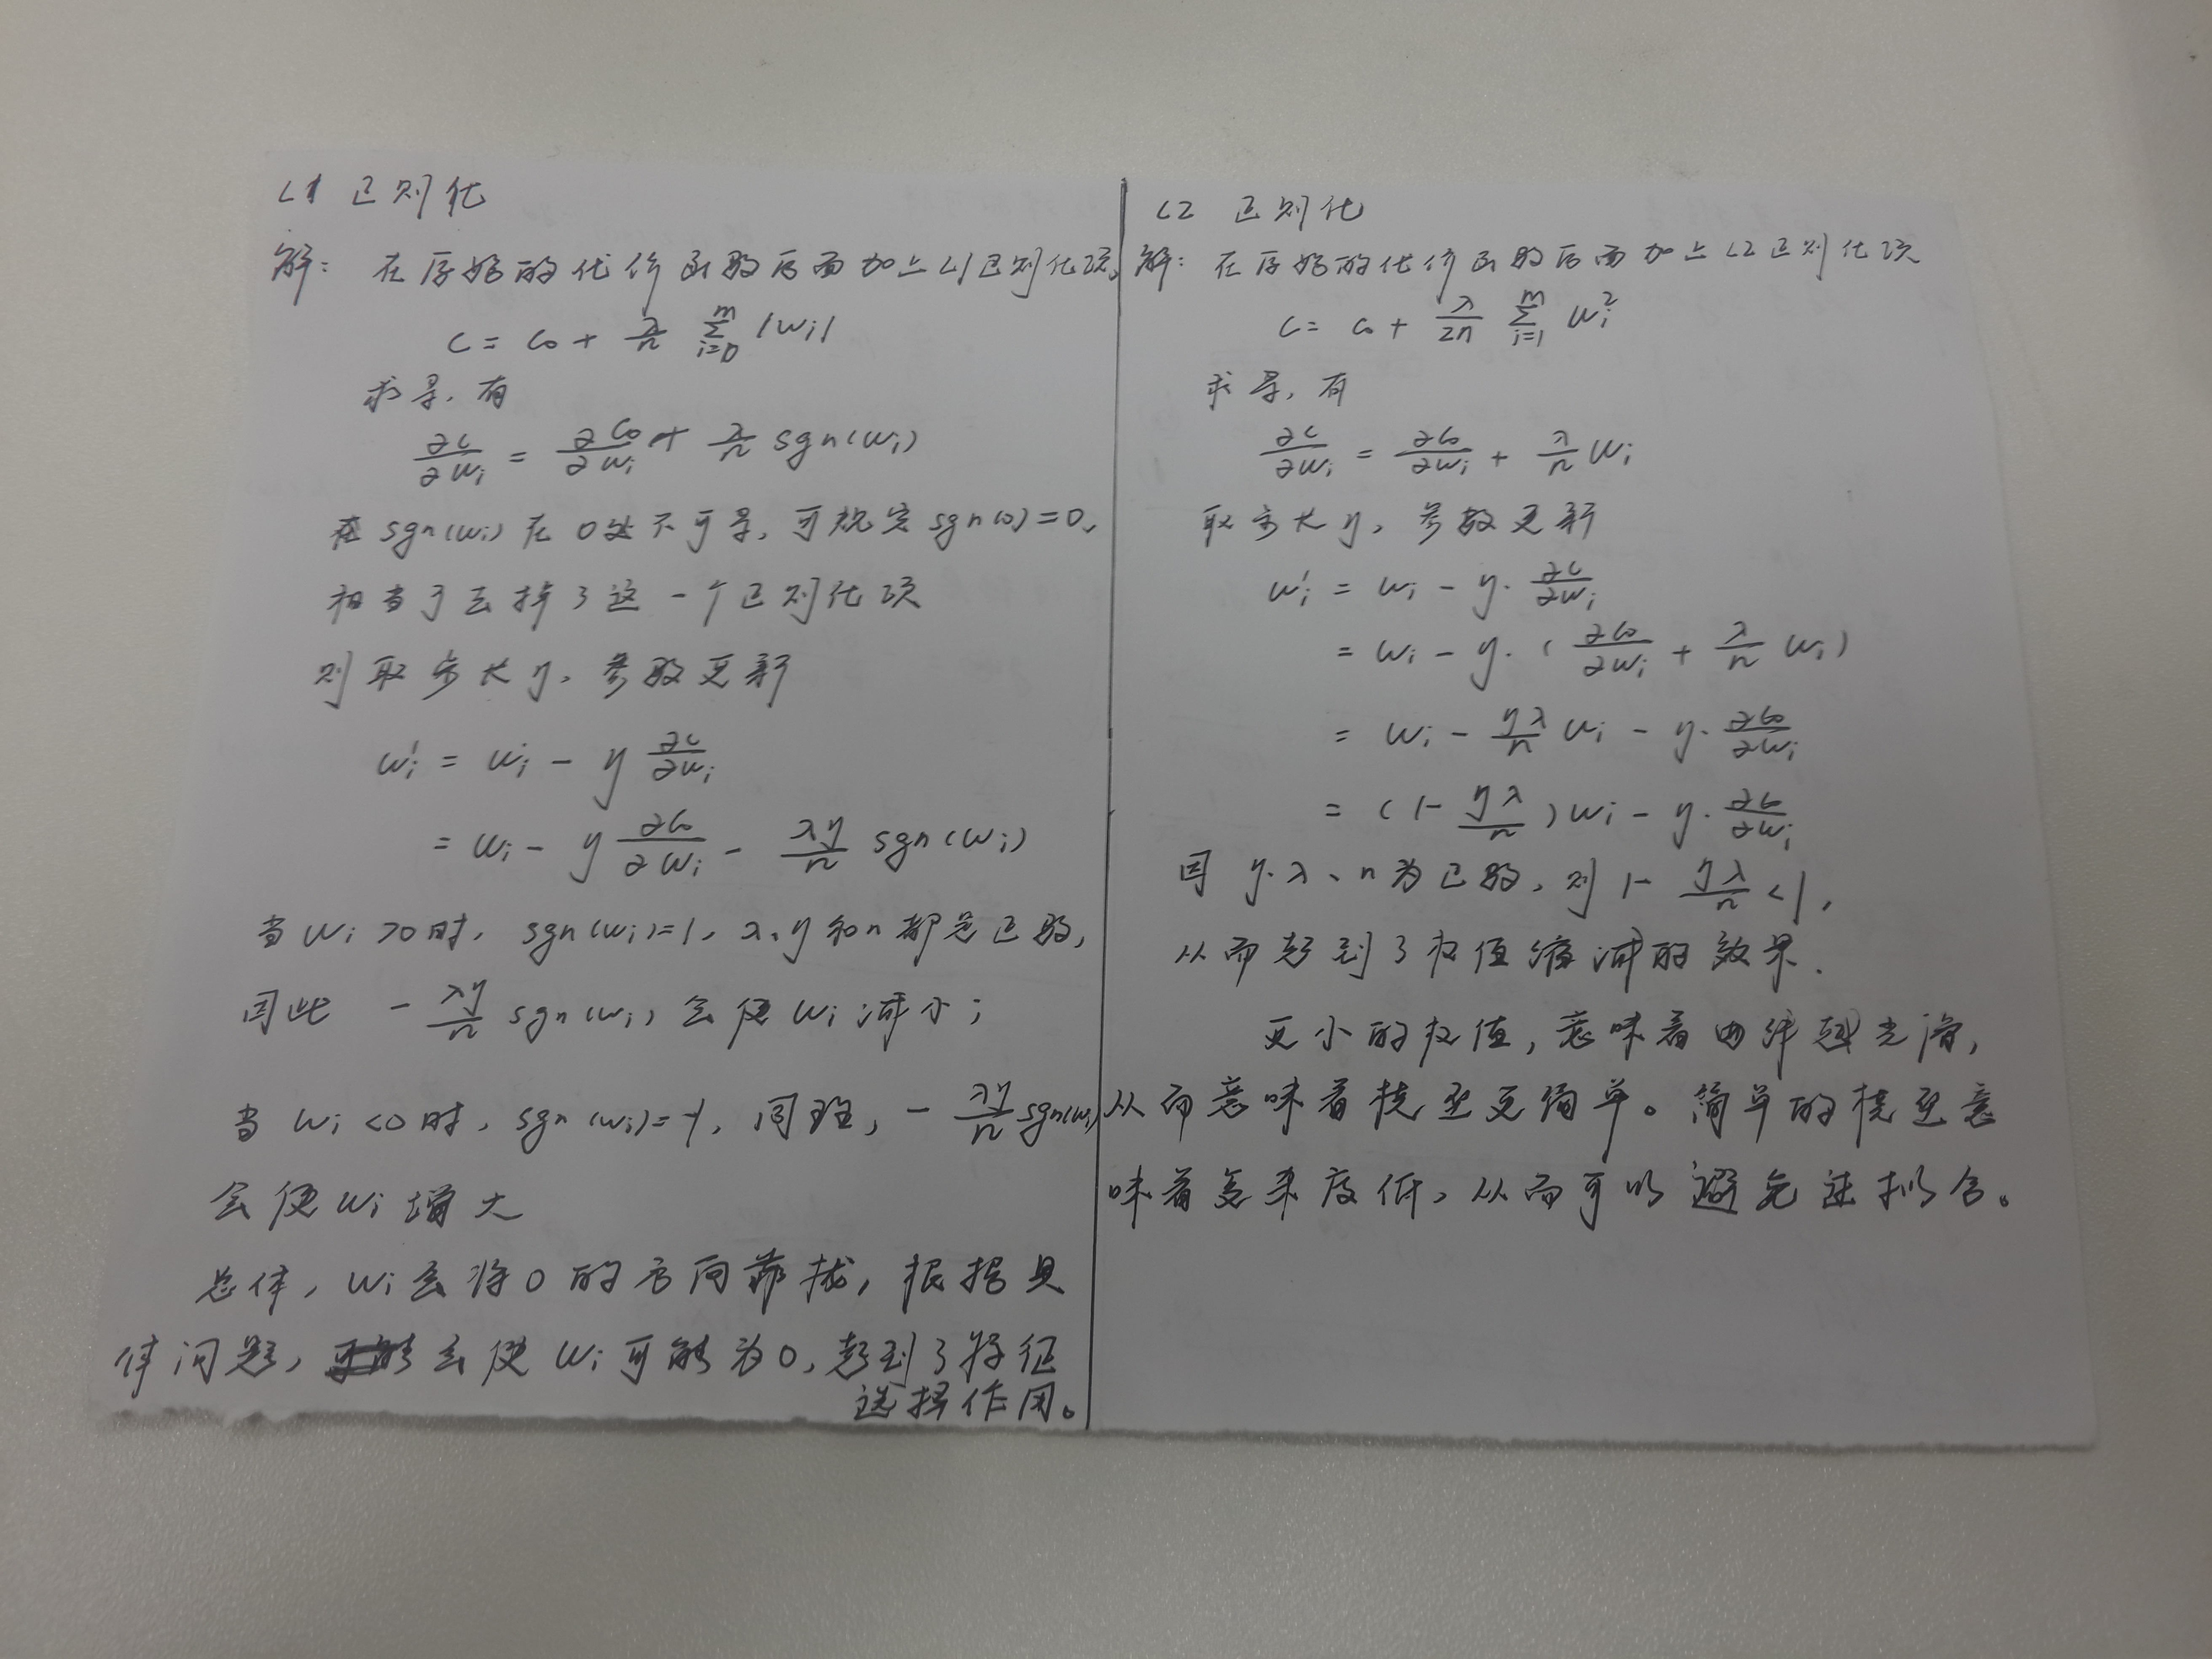 L1 正则化
解: 在原始的代价函数后面加上L1正则化项,
C = C₀ + λ/n ∑_{i=0}^{m} |wᵢ|
求导,有
∂C/∂wᵢ = ∂C₀/∂wᵢ + λ/n sgn(wᵢ)
sgn(wᵢ) 在 0处不可导, 可规定 sgn(0)=0,
相当于去掉了这一个正则化项
则取步长η, 参数更新
wᵢ' = wᵢ - η ∂C/∂wᵢ
= wᵢ - η ∂C₀/∂wᵢ - λη/n sgn(wᵢ)
当 wᵢ >0时, sgn(wᵢ)=1, λ、η和n都是正数,
因此 - λη/n sgn(wᵢ) 会使 wᵢ 减小;
当 wᵢ <0时, sgn(wᵢ)=-1, 同理, - λη/n sgn(wᵢ)
会使 wᵢ 增大
总体, wᵢ会将0的方向靠拢, 根据具
体问题, 会使 wᵢ 可能为0, 起到了特征
选择作用。
L2 正则化
解: 在原始的代价函数后面加上L2正则化项
C = C₀ + λ/2n ∑_{i=1}^{m} wᵢ²
求导, 有
∂C/∂wᵢ = ∂C₀/∂wᵢ + λ/n wᵢ
取步长η, 参数更新
wᵢ' = wᵢ - η· ∂C/∂wᵢ
= wᵢ - η· ( ∂C₀/∂wᵢ + λ/n wᵢ )
= wᵢ - ηλ/n wᵢ - η· ∂C₀/∂wᵢ
= (1- ηλ/n ) wᵢ - η· ∂C₀/∂wᵢ
因 η、λ、n为正数, 则 1- ηλ/n <1,
从而起到了权值缩减的效果.
更小的权值, 意味着曲线越光滑,
从而意味着模型更简单。简单的模型意
味着复杂度低, 从而可以避免过拟合。